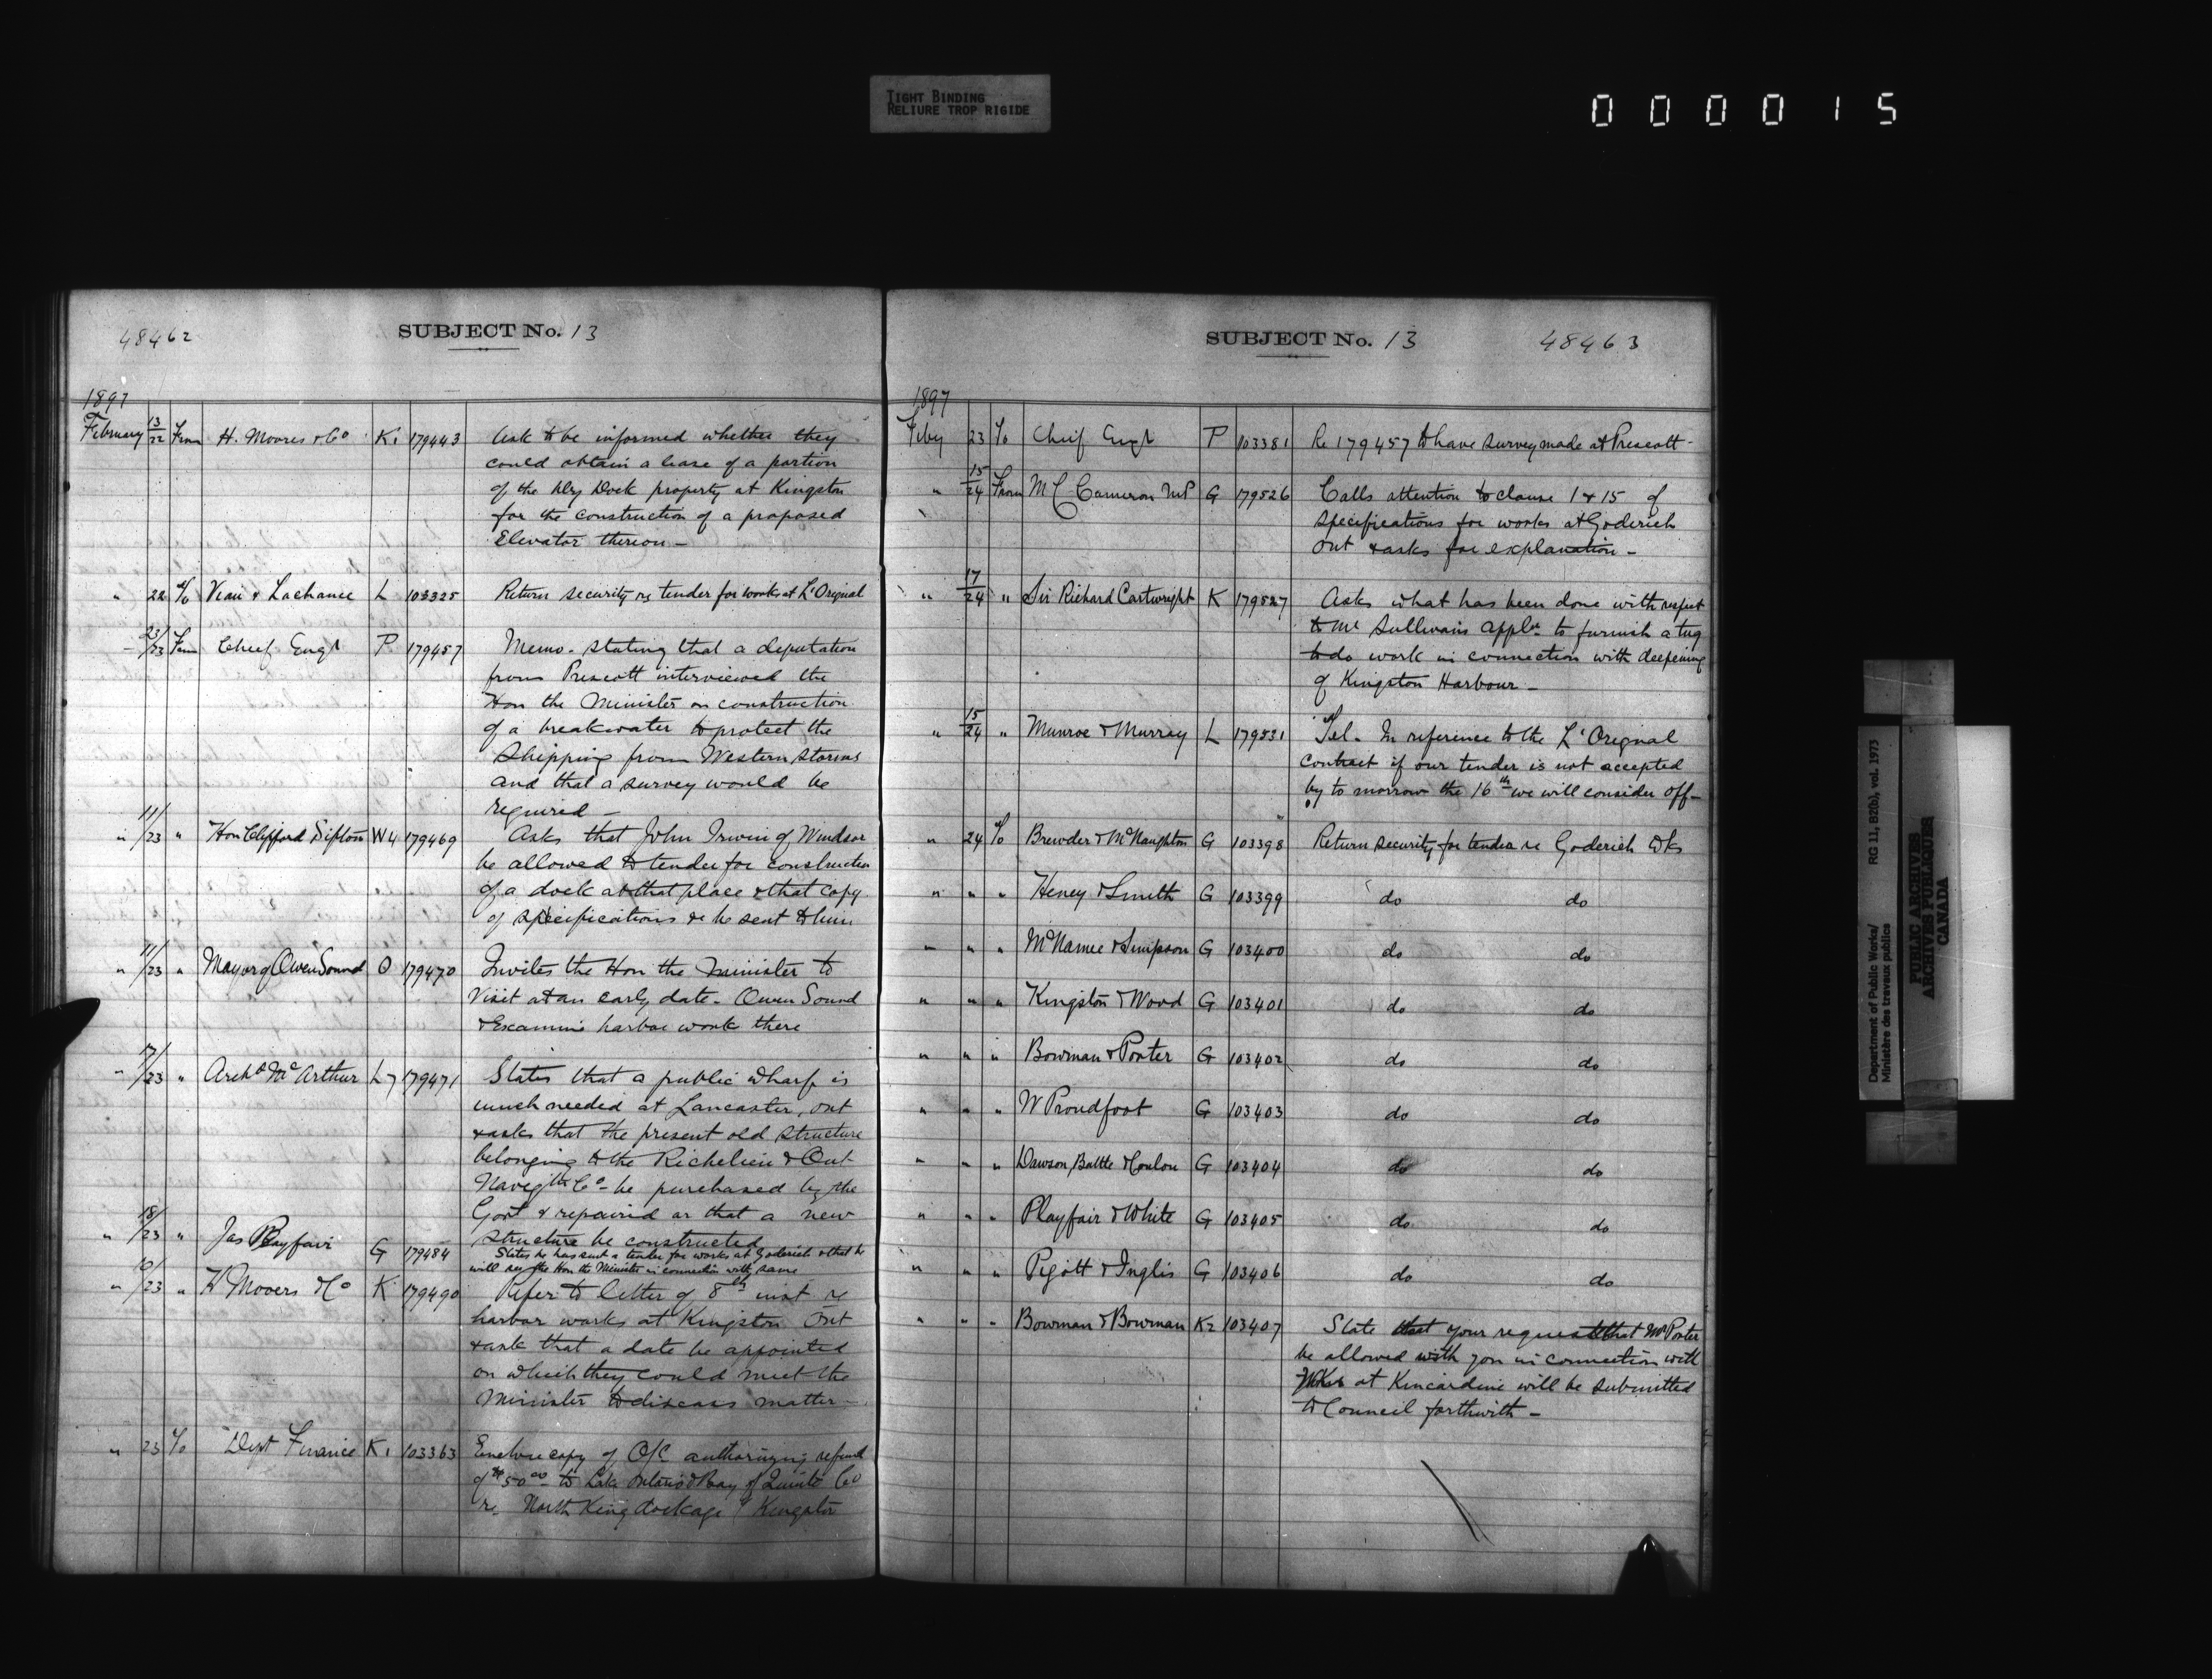 TIGHT BINDING
RELIURE TROP RIGIDE
000015
48462
SUBJECT No. 13
1897
February 13/22 From H. Moores & Co K1 179443 Ask to be informed whether they
could obtain a lease of a portion
of the Dry Dock property at Kingston
for the construction of a proposed
Elevator thereon -
" 22 To Viau & Lachance L 103325 Return security re tender for works at L'Orignal
" 23/23 From Chief Engr P 179457 Memo. stating that a deputation
from Prescott interviewed the
Hon the Minister on construction
of a breakwater to protect the
Shipping from Western storms
and that a survey would be
required -
" 11/23 " Hon Clifford Sifton W4 179469 Asks that John Irwin of Windsor
be allowed to tender for construction
of a dock at that place & that copy
of specifications &c be sent to him
" 11/23 " Mayor of Owen Sound O 179470 Invites the Hon the Minister to
Visit at an early date - Owen Sound
& Examine harbor work there
" 17/23 " Archd McArthur L7 179471 States that a public wharf is
much needed at Lancaster, Ont
& asks that the present old structure
belonging to the Richelieu & Ont
Navigtn Co - be purchased by the
Govt & repaired or that a new
structure be constructed
" 18/23 " Jas Playfair G 179484 States he has sent a tender for works at Goderich & that he
will see the Hon the Minister in connection with same
" 10/23 " H Moores & Co K 179490 Refer to letter of 8th inst re
harbor works at Kingston Ont
& ask that a date be appointed
on which they could meet the
Minister to discuss matter -
" 23 To Dept Finance K1 103363 Enclose copy of O/C authorizing refund
of $50 00 - to Lake Ontario & Bay of Quinte Co
re North King dockage Kingston
SUBJECT No. 13
48463
1897
Feby 23 To Chief Engr P 103381 Re 179457 to have survey made at Prescott -
" 15/24 From M C Cameron MP G 179526 Calls attention to clause 1 & 15 of
specifications for works at Goderich
Ont & asks for explanation -
" 17/24 " Sir Richard Cartwright K 179527 Asks what has been done with respect
to Mr Sullivan's appln to furnish a tug
to do work in connection with deepening
of Kingston Harbour -
" 15/24 " Munroe & Murray L 179531 Tel - In reference to the L'Orignal
contract if our tender is not accepted
by to morrow the 16th we will consider off -
" 24 To Brewder & McNaughton G 103398 Return security for tender re Goderich Wks
" " " Heney & Smith G 103399 do do
" " " McNamee & Simpson G 103400 do do
" " " Kingston & Wood G 103401 do do
" " " Bowman & Porter G 103402 do do
" " " W Proudfoot G 103403 do do
" " " Dawson, Battle & Conlon G 103404 do do
" " " Playfair & White G 103405 do do
" " " Pigott & Inglis G 103406 do do
" " " Bowman & Bowman K2 103407 State that your request that Mr Porter
be allowed with you in connection with
Wks at Kincardine will be submitted
to Council forthwith -
Department of Public Works/ RG 11, B2(b), vol. 1973
Ministère des travaux publics
PUBLIC ARCHIVES
ARCHIVES PUBLIQUES
CANADA